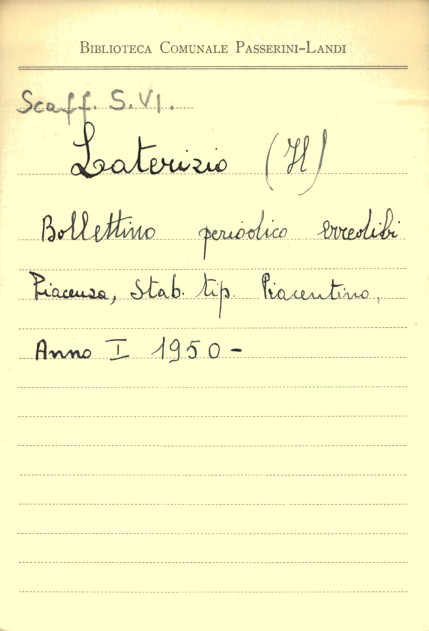 BIBLIOTECA COMUNALE PASSERINI-LANDI
Scaff. S.VI.
Laterizio (Il)
Bollettino periodico erreolibi
Piacenza, Stab. tip. Piacentino,
Anno I 1950-